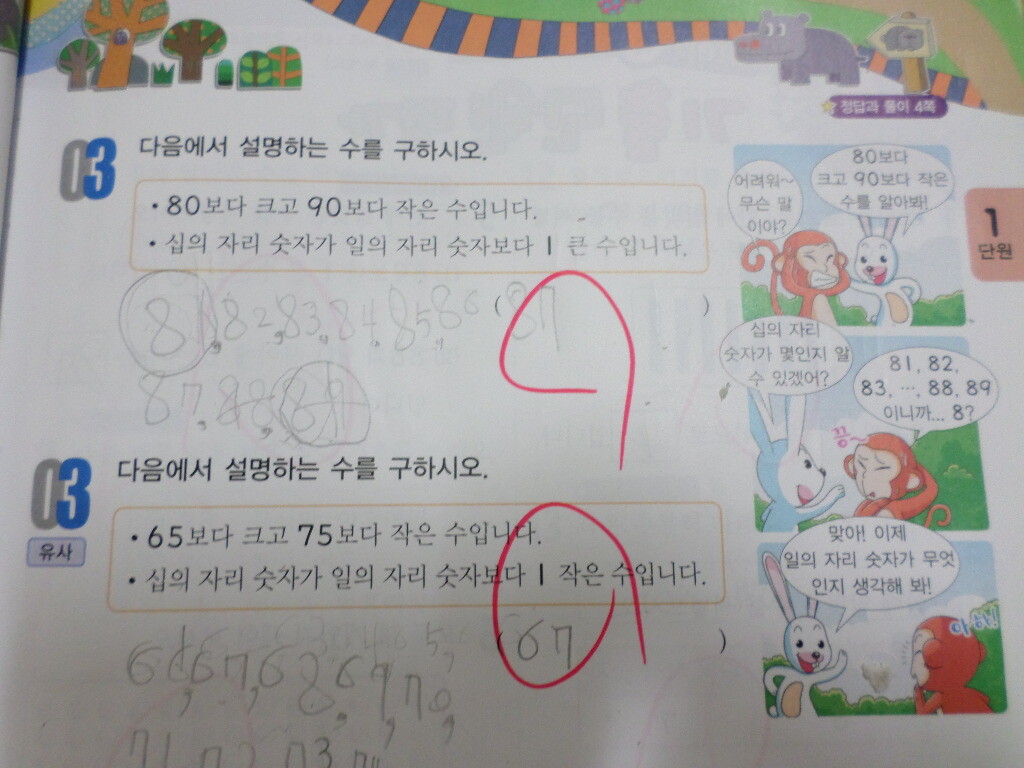 정답과 풀이 4쪽
03 다음에서 설명하는 수를 구하시오.
• 80보다 크고 90보다 작은 수입니다.
• 십의 자리 숫자가 일의 자리 숫자보다 1 큰 수입니다.
81, 82, 83, 84, 85, 86
( 87 )
87, 88, 89
03 다음에서 설명하는 수를 구하시오.
유사
• 65보다 크고 75보다 작은 수입니다.
• 십의 자리 숫자가 일의 자리 숫자보다 1 작은 수입니다.
( 67 )
66, 67, 68, 69, 70,
71
73
어려워~
무슨 말
이야?
80보다
크고 90보다 작은
수를 알아봐!
1
단원
십의 자리
숫자가 몇인지 알
수 있겠어?
81, 82,
83, …, 88, 89
이니까… 8?
끙~
맞아! 이제
일의 자리 숫자가 무엇
인지 생각해 봐!
아하!